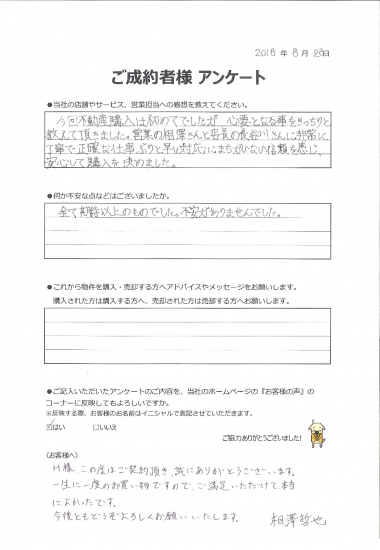 2016 年 8月 28日
ご成約者様 アンケート
●当社の店舗やサービス、営業担当への感想を教えてください。
今回不動産購入は初めてでしたが 必要となる事をきっちりと
教えて頂きました。営業の相澤さんと店長の長谷川さんに非常に
丁寧で正確な仕事ぶりと早い対応にまちがいない信頼を感じ、
安心して購入を決めました。
●何か不安な点などはございましたか。
全て期待以上のものでした。不安がありませんでした。
●これから物件を購入・売却する方へアドバイスやメッセージをお願いします。
購入された方は購入する方へ、売却された方は売却する方へお願いします。
●ご記入いただいたアンケートのご内容を、当社のホームページの『お客様の声』の
コーナーに反映してもよろしいですか。
※反映する際、お客様のお名前はイニシャルで表記させていただきます。
☑はい □いいえ
ご協力ありがとうございました!
《お客様へ》
H様、この度はご契約頂き、誠にありがとうございます。
一生に一度のお買い物ですので、ご満足いただけて本当
によかったです。
今後ともどうぞよろしくお願いいたします。
相澤哲也